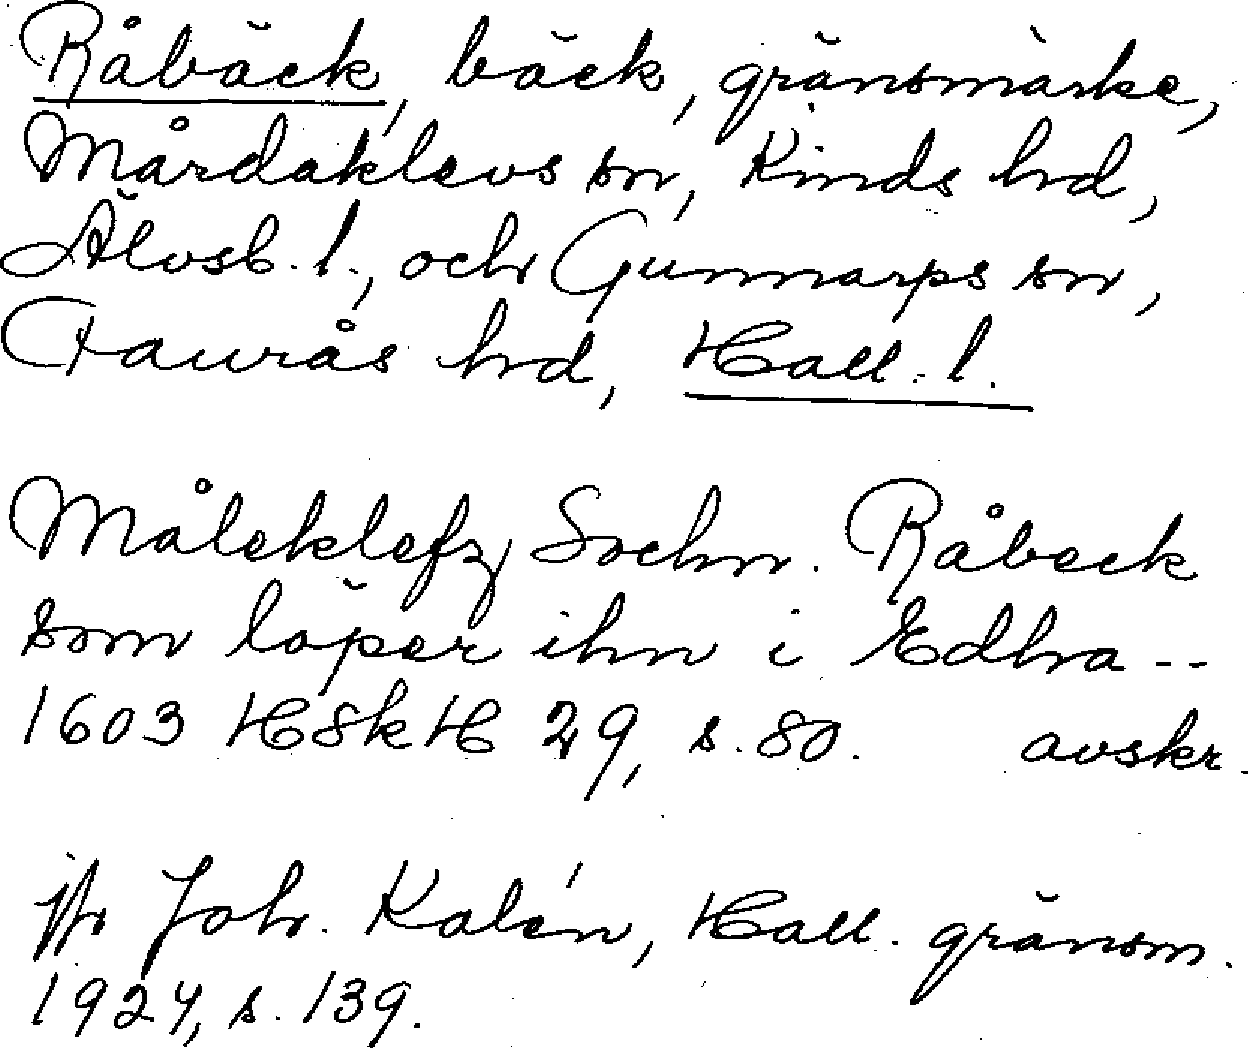 Råbäck, bäck, gränsmärke,
Mårdaklevs sn, Kinds hd,
Älvsb. l., och Gunnarps sn,
Faurås hd, Hall. l.
Måleklefz Sochn. Råbeck
som löper ihn i Edhra --
1603 HSkH 29, s. 80. avskr.
jfr Joh. Kalén, Hall. gränsm.
1924, s. 139.